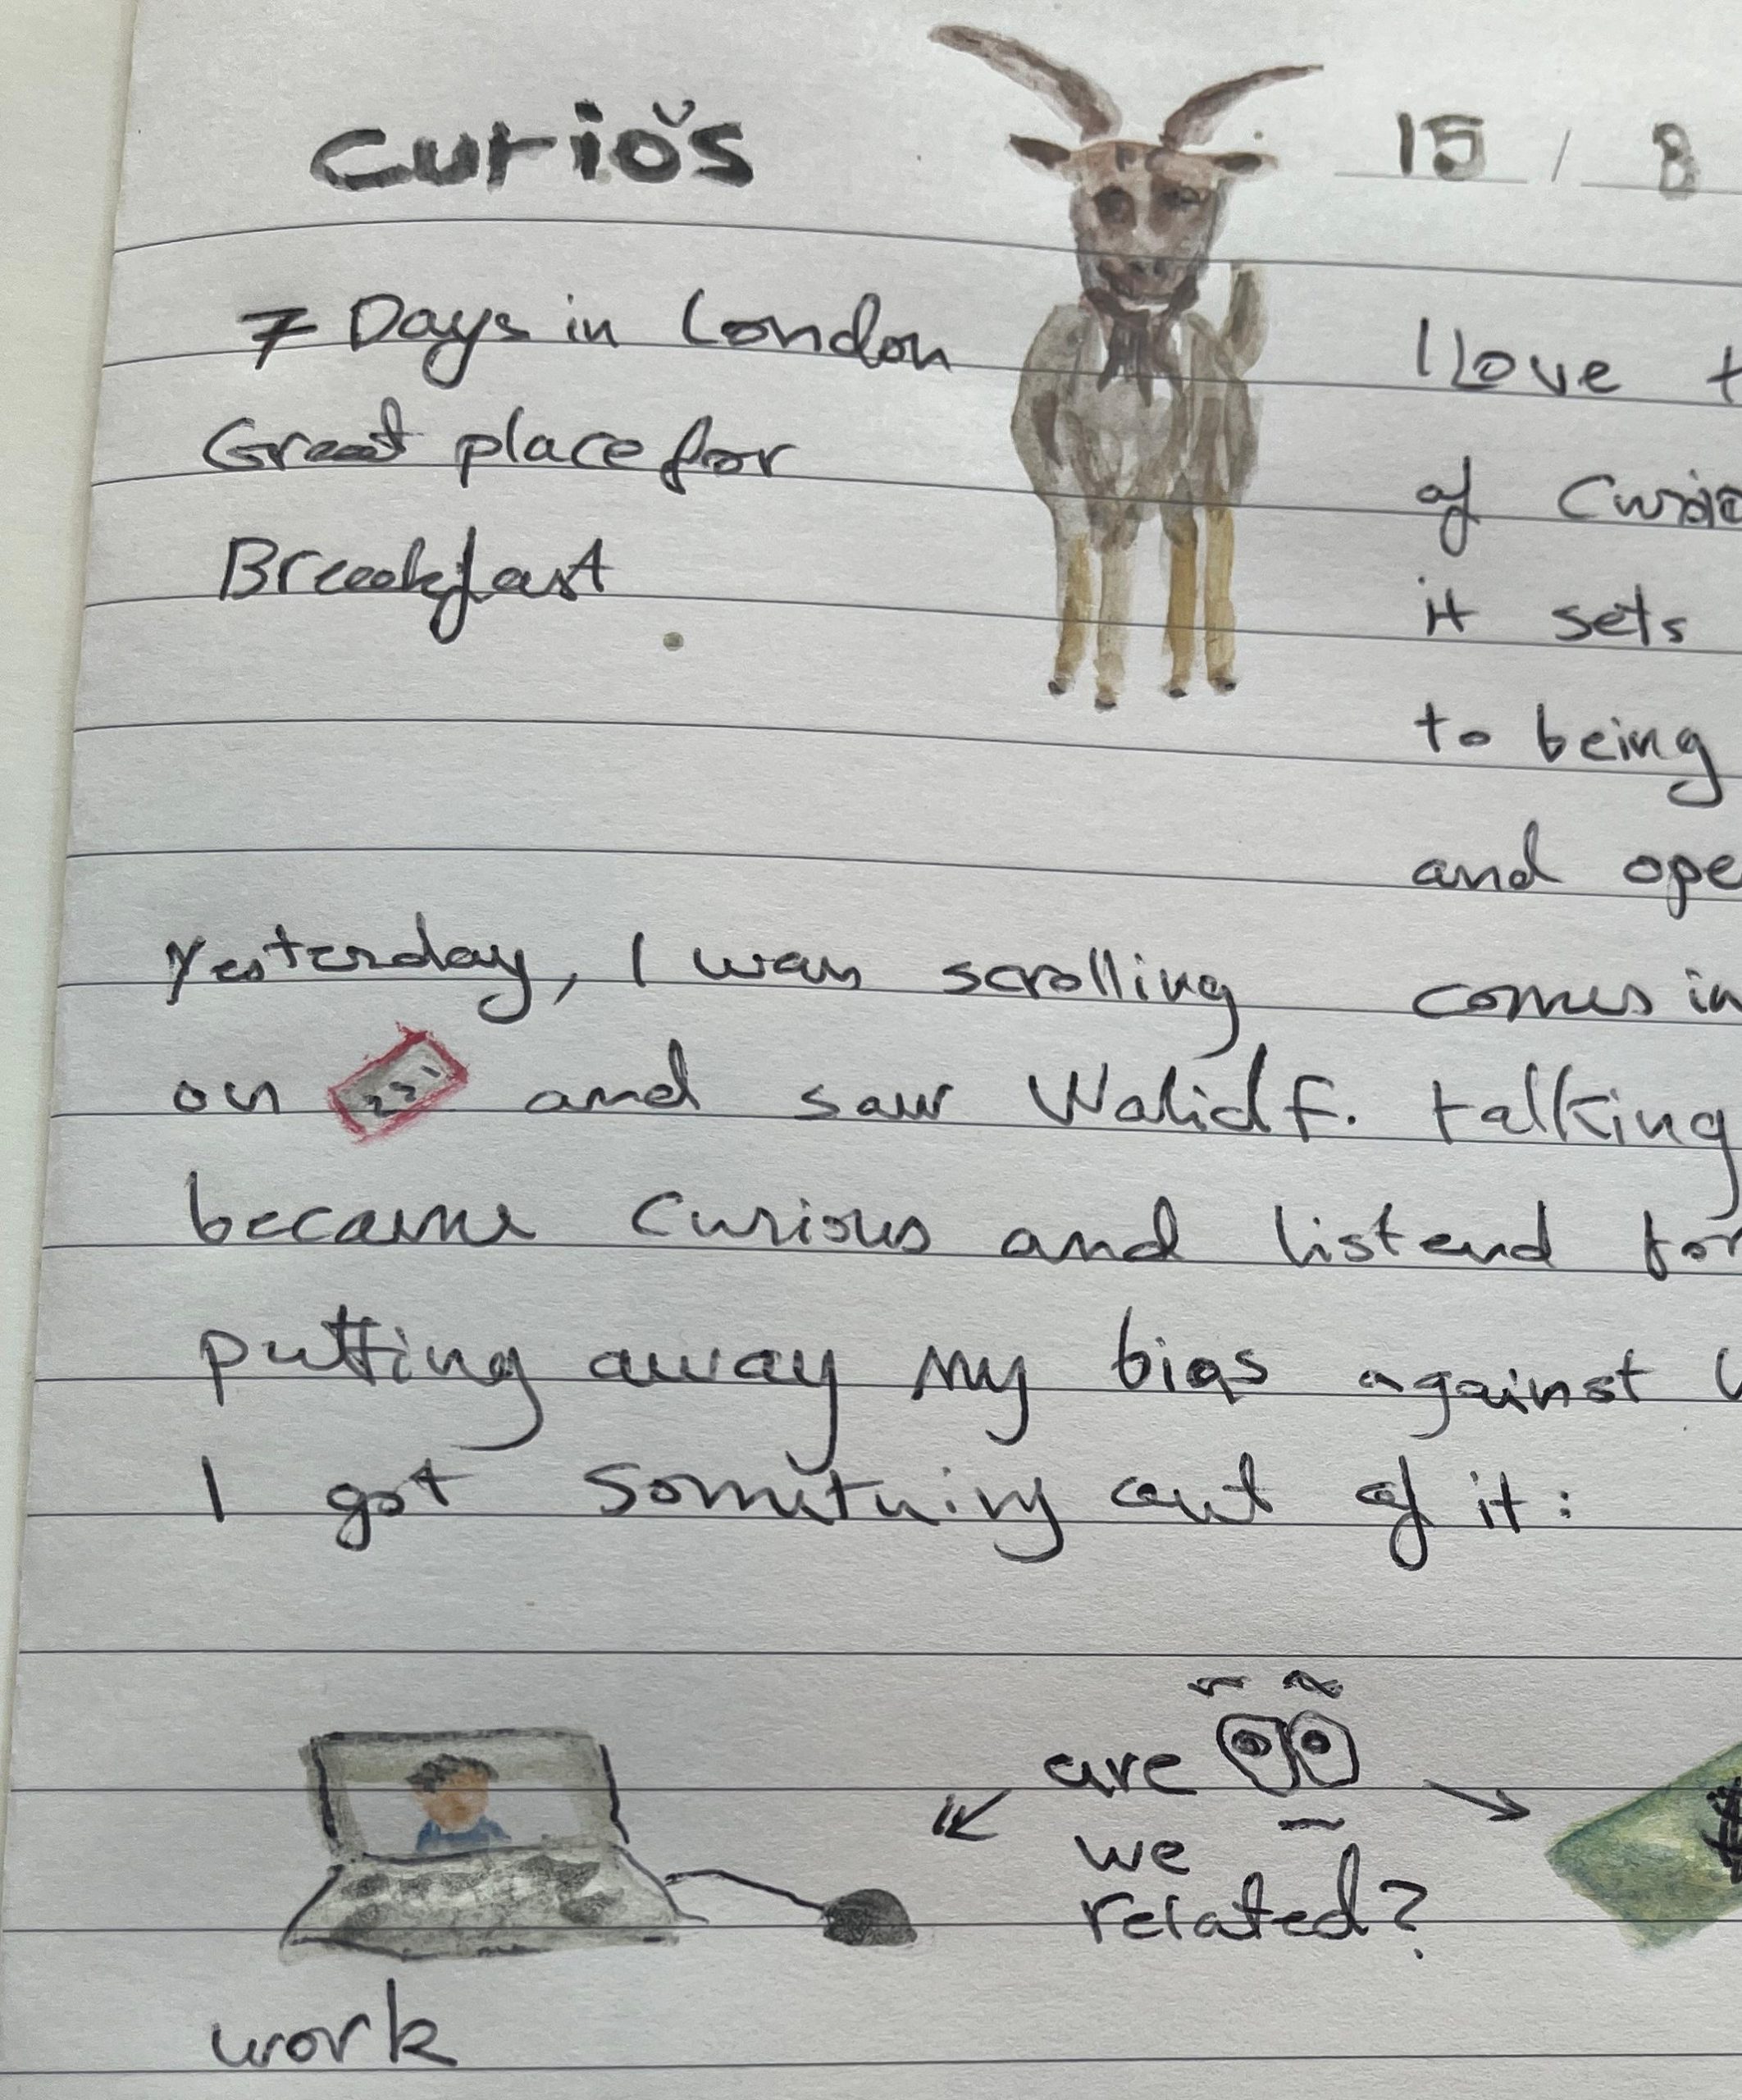 curio's
15 / 8
7 Days in London
Great place for
Breakfast
I Love
of
it sets
to being
and
Yesterday, I was scrolling
comes in
on and saw Walid F. talking
became curious and listend for
putting away my bias against
I got something out of it:
are
we
related?
$
work